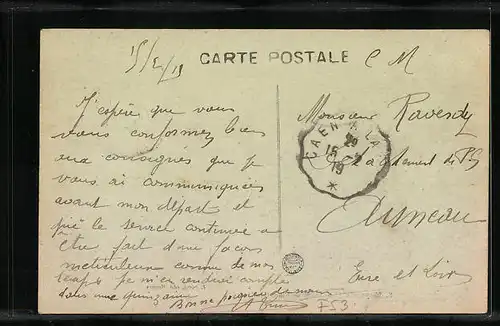 15/2/19
CARTE POSTALE
C M
J'espère que vous
vous conformez bien
aux consignes que je
vous ai communiquées
avant mon départ et
que le service continue à
être fait d'une façon
méticuleuse comme de mon
temps je m'en rendrai compte
dans une quinzaine
Bonne poignée de main
Monsieur Ravesdy
CAEN A LA
29
15-2
19
détachement de P.G
Auneau
Eure et Loir
F53